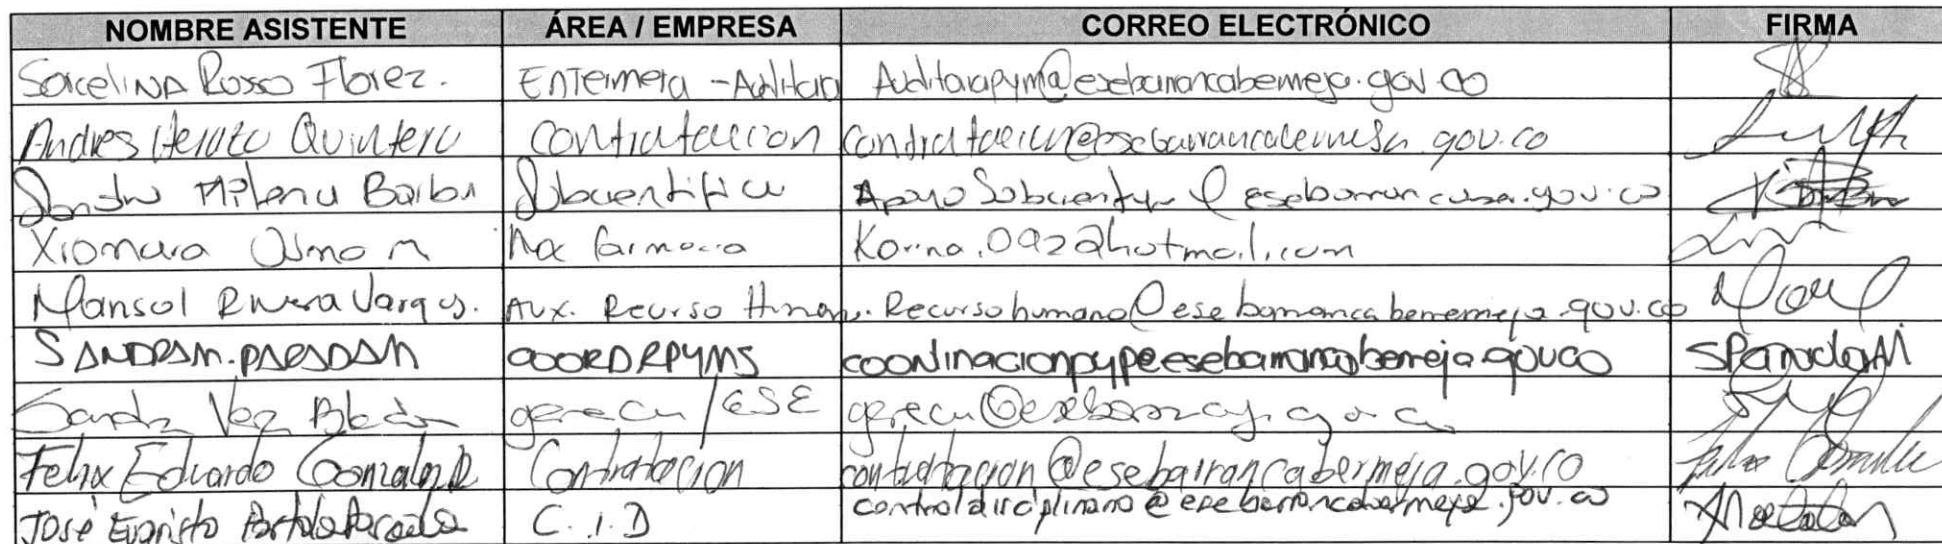 NOMBRE ASISTENTE ÁREA / EMPRESA CORREO ELECTRÓNICO FIRMA
Sorcelina Rosso Florez. Enfermera - Auditora Auditoriapym@esebarrancabermeja.gov.co
Andres Quintero Contratacion contratacion@esebarrancabermeja.gov.co
Milena Barbos Subcientifica Apoyo
Xiomara Aux Farmacia Korina.092@hotmail.com
Marisol Rivera Vargas. Aux. Recurso Human. Recursohumano@esebarrancabermemeja.gov.co
SANDRA M. PARADA M COORD RPYMS coordinacionpype esebarrancabermeja.gov.co SParadaM
Sandra Vega gerecu / ESE
Felix Eduardo Gonzalez Contratacion contratacion@esebarrancabermeja.gov.co
José Evaristo C.I.D controldisciplinario@esebarrancabermeja.gov.co